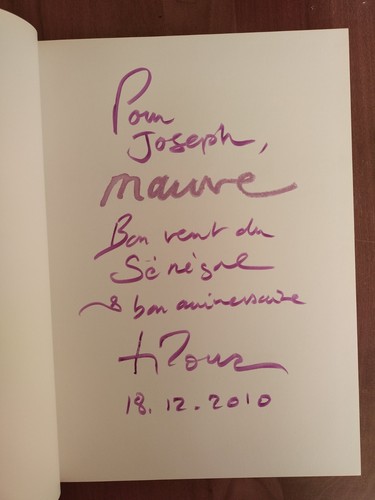 Pour
Joseph,
mauve
Bon vent du
Sénégal
& bon anniversaire
18.12.2010